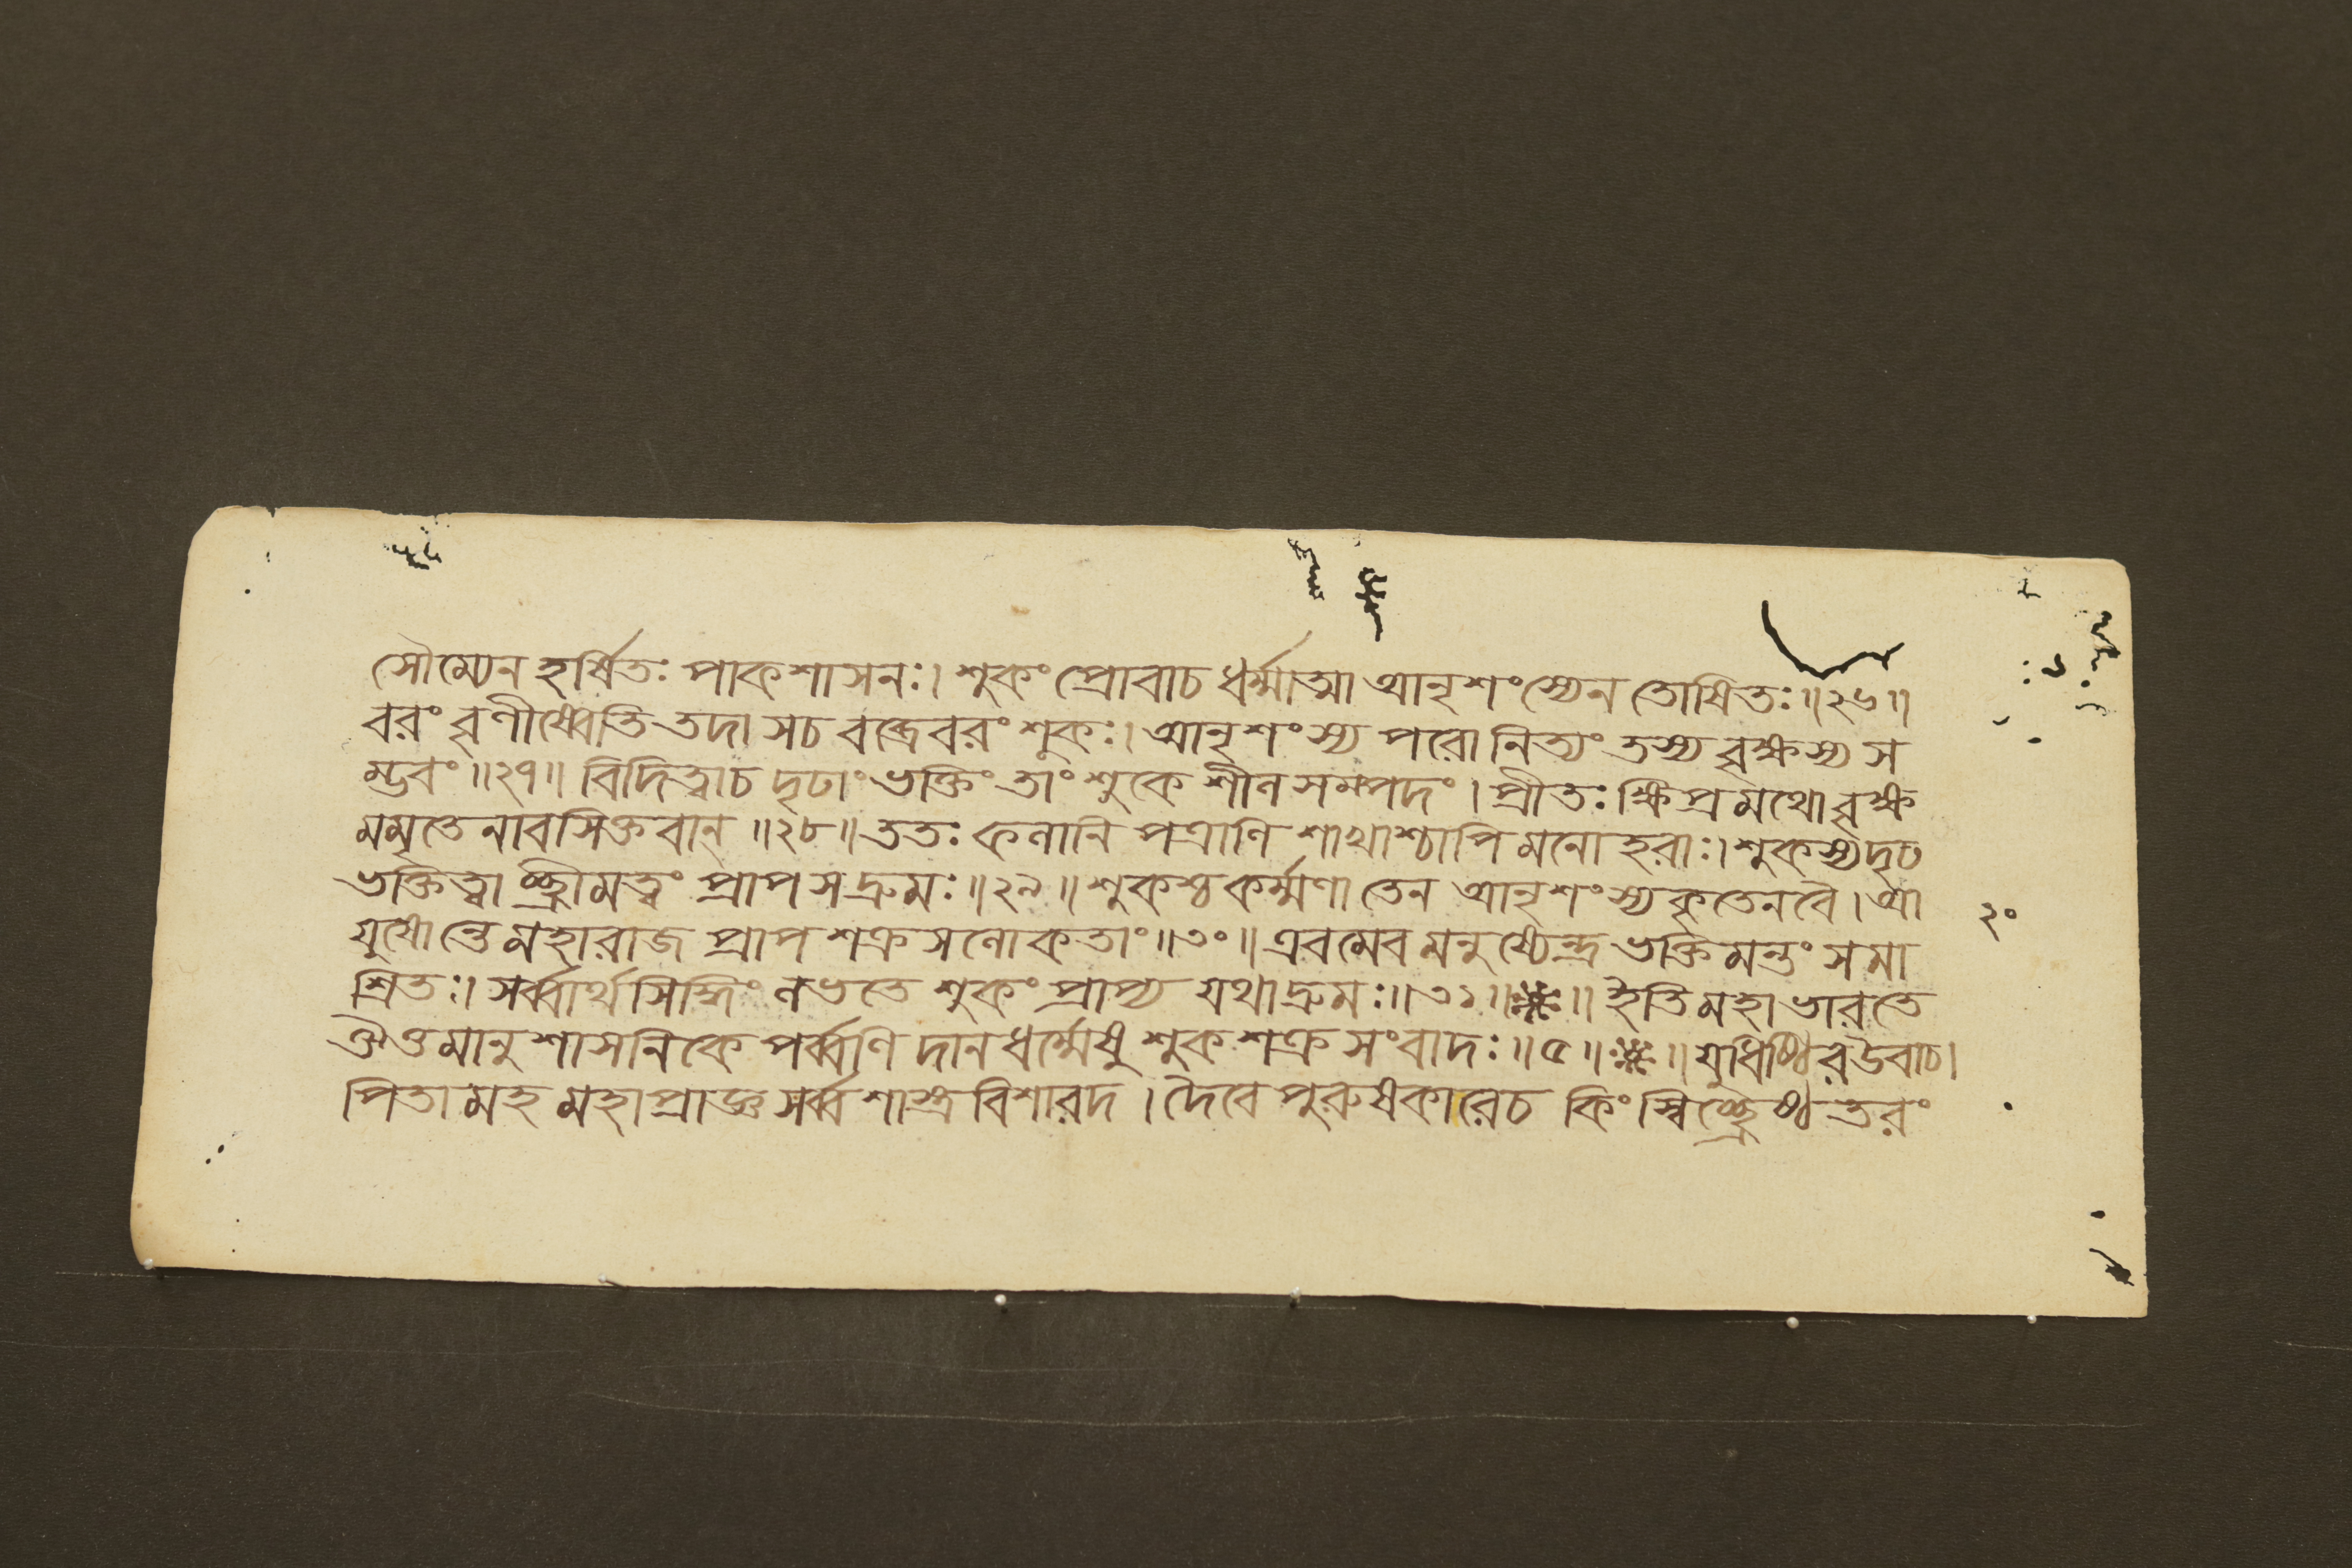 সৌম্যেন হর্ষিতঃ পাকশাসনঃ। শুকং প্রোবাচ ধর্ম্মাত্মা আনৃশংস্যেন তোষিতঃ॥২৬॥
বরং বৃণীষ্বেতি তদা সচ বব্রেবরং শুকঃ। আনৃশংস্য পরো নিত্যং তস্য বৃক্ষস্য স
ম্ভবং॥২৭॥ বিদিত্বাচ দৃঢাং ভক্তিং তাং শুকে শীলসম্পদং। প্রীতঃ ক্ষিপ্রমথো বৃক্ষ
মমৃতেনাবসিক্তবান্॥২৮॥ ততঃ ফলানি পত্রাণি শাখাশ্চাপি মনোহরাঃ। শুকস্যদৃঢ
ভক্তিত্বাচ্ছ্রীমত্বং প্রাপসদ্রুমঃ॥২৯॥ শুকশ্চ কর্ম্মণা তেন আনৃশংস্যকৃতেনবৈ। আ
যুষোন্তেমহারাজ প্রাপ শক্রসলোকতাং॥৩০॥ এবমেব মনুষ্যেন্দ্র ভক্তিমন্তং সমা
শ্রিতঃ। সর্ব্বার্থসিদ্ধিং লভতে শুকং প্রাপ্য যথাদ্রুমঃ॥৩১॥ ॥ ইতিমহাভারতে
ঐওমানুশাসনিকে পর্ব্বণি দানধর্ম্মেষু শুকশক্রসংবাদঃ॥৫॥ ॥যুধিষ্ঠিরউবাচ।
পিতামহ মহাপ্রাজ্ঞ সর্ব্বশাস্ত্রবিশারদ। দৈবে পুরুষকারেচ কিংস্বিচ্ছ্রেষ্ঠতরং
২০